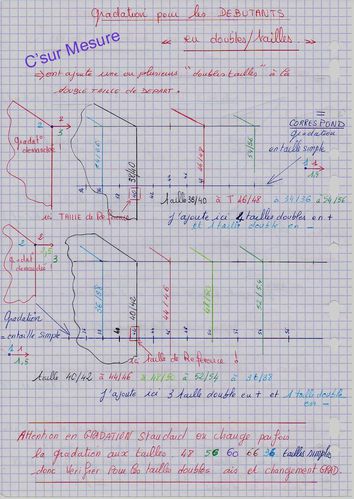 Gradation pour les DEBUTANTS
" en doubles/tailles. "
C'sur Mesure
=> on t ajouté une ou plusieurs "doubles tailles" à la
DOUBLE TAILLE DE DEPART.
=
CORRESPOND
gradation
en taille simple
1
1
1,5
2
2
3
gradat°
demandée!
34/36
38/40
46/48
54/56
40
ici TAILLE de Référence
taille 38/40 à T 46/48 à 34/36 à 54/56
J'ajoute ici 4 tailles doubles en +
et 1 taille double en -
2
3
gradat°
demandée!
36/38
40/42
44/46
48/50
52/54
Gradation
= en taille simple
1
1,5
ici taille de Reference !
taille 40/42 à 44/46 à 48/50 à 52/54 à 36/38
J'ajoute ici 3 taille double en + et 1 taille double
en -
Attention en GRADATION Standard on change parfois
la gradation aux tailles 48 56 60 66 36 tailles simples
donc Verifier Pour les tailles doubles aussi et changement GRAD.